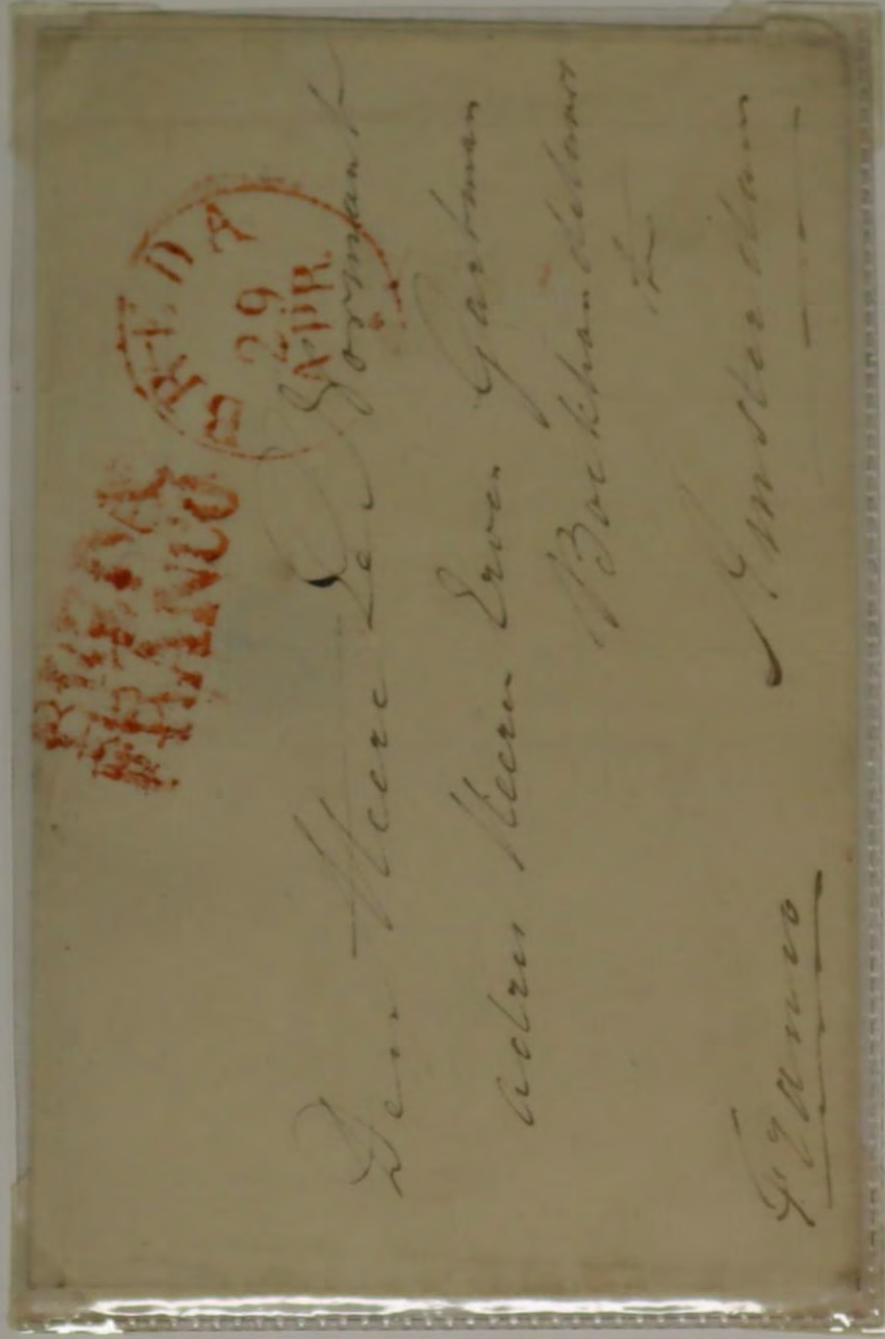 BREDA
FRANCO
BREDA
29
APR.
Den Heere
adres Heeren Erven Gartman
Boekhandelaars
te
Amsterdam
Franco